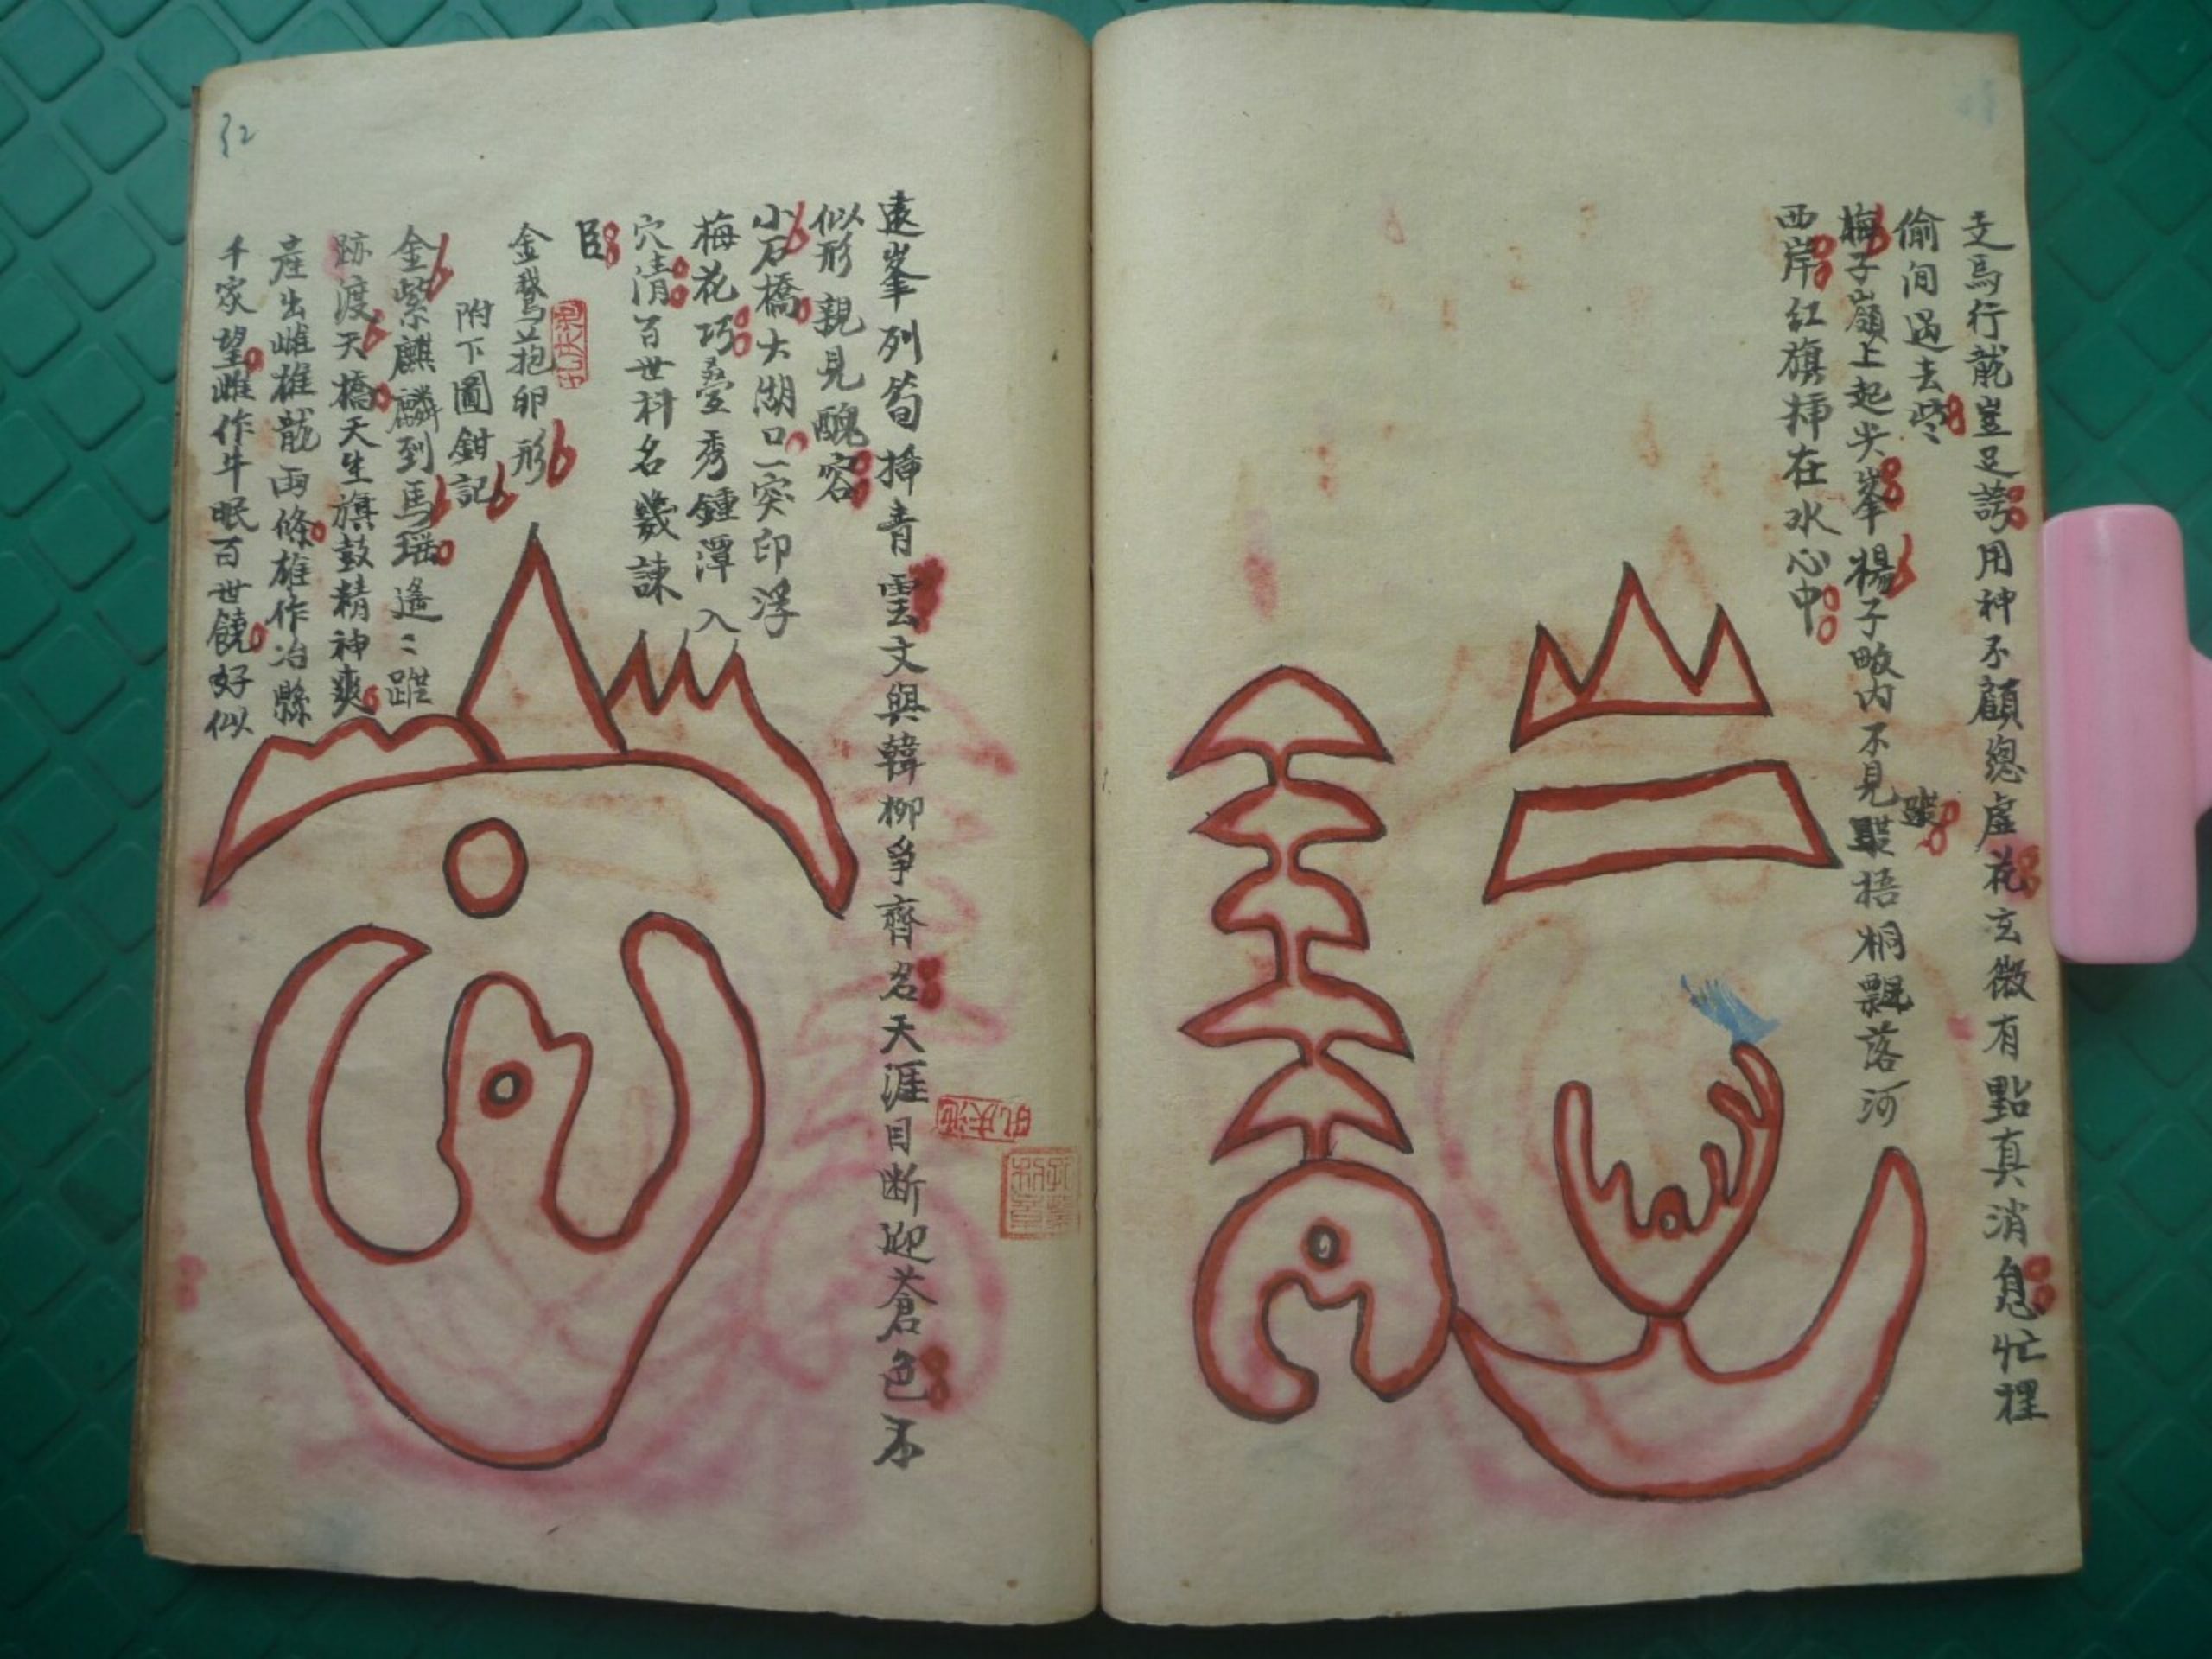 支馬行龍豈足誇用神不顧總虛花玄微有點真消息忙裡
偷间過去
梅子嶺上起尖峯楊子畈内不見蹤梧桐飄落河
西岸紅旗挿在水心中
遠峯列筍揷青雲文與韓柳爭齊名天涯目断迎蒼色不
似形親見醜容
小石橋大湖口一突印浮
梅花巧臺秀鍾潭入
穴清百世科名幾諫
臣
金鵞苞卵形
附下圖鉗記
金紫麒麟到馬瑶遙〻
跡渡天橋天生旗鼓精神爽
産出雌雄龍両條雄作冶縣
千家望雌作牛眠百世饒好似